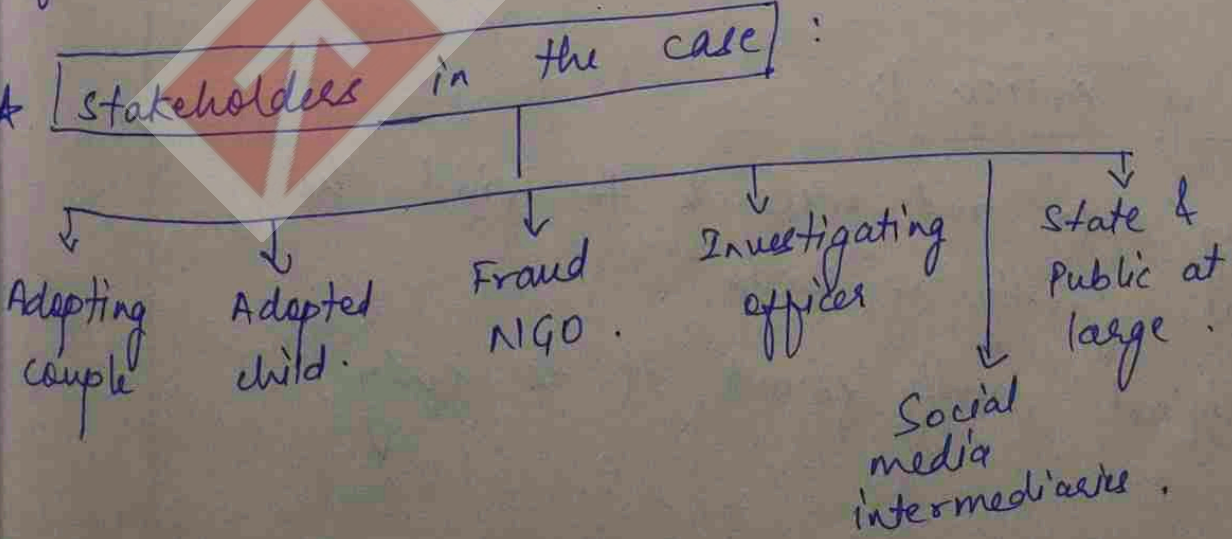 Stakeholders in the case :
Adopting
couple
Adopted
child.
Fraud
NGO.
Investigating
officer
Social
media
intermediaries.
State &
Public at
large.